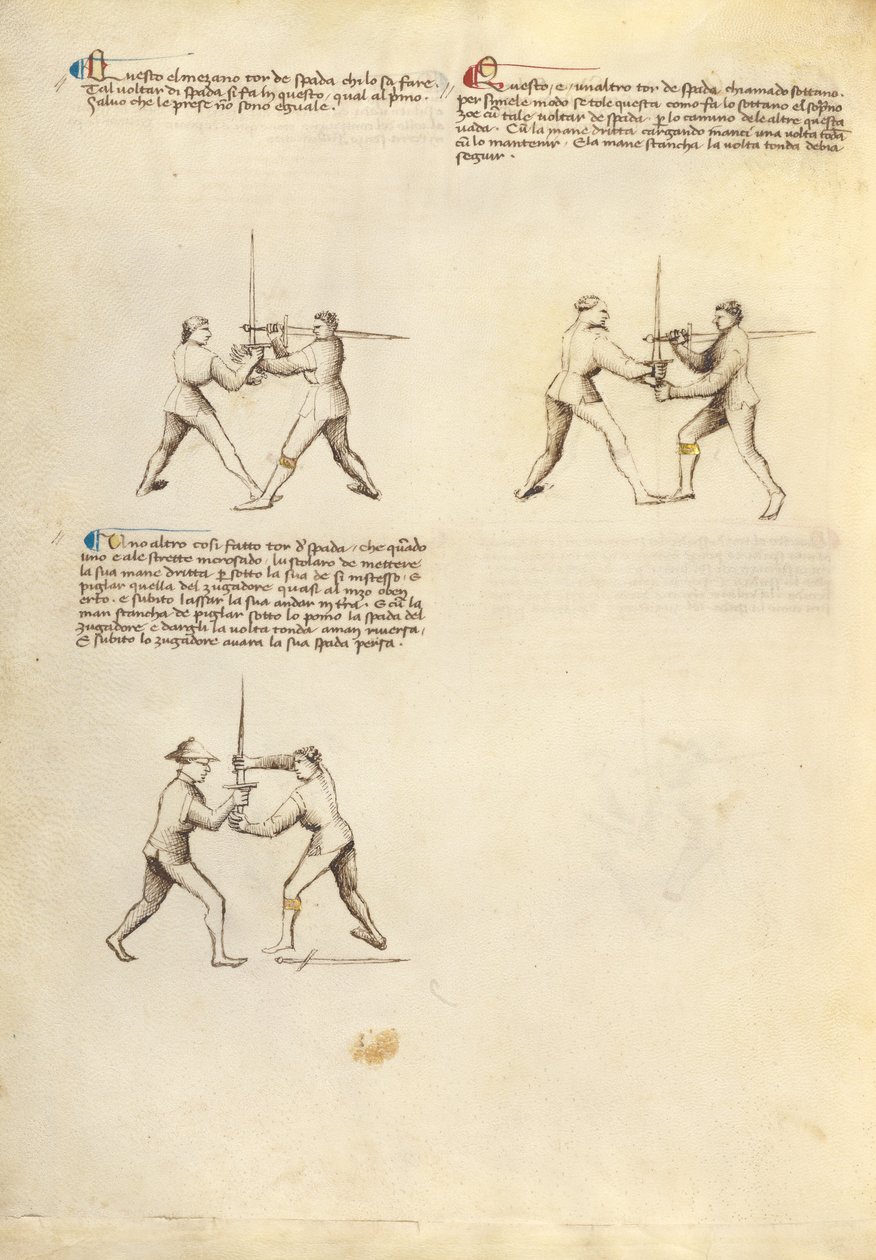 Questo el mezano tor de spada chi lo sa fare.
Tal voltar di spada si fa in questo, qual al pmo.
Salvo che le prese nō sono eguale.
Questo, e, unaltro tor de spada chiamado sottano.
per simele modo se tole questa como fa lo sottano el soprno
zoe cū tale voltar de spada. p lo camino dele altre questa
vada. Cū la mane dritta cargando inanci una volta todā
cū lo mantenir. E la mane stancha la volta tonda debia
seguir.
Uno altro cosi fatto tor d' spada, che quādo
uno e ale strette incrosado, lu scolaro de mettere
la sua mane dritta p sotto la sua de si instesso. E
piglar quella del zugadore quasi al mzo o ben
erto. e subito lassar la sua andar in tra. E cū la
man stancha de piglar sotto lo pomo la spada del
zugadore e dargli la volta tonda aman riversa,
E subito lo zugadore avara la sua spada persa.